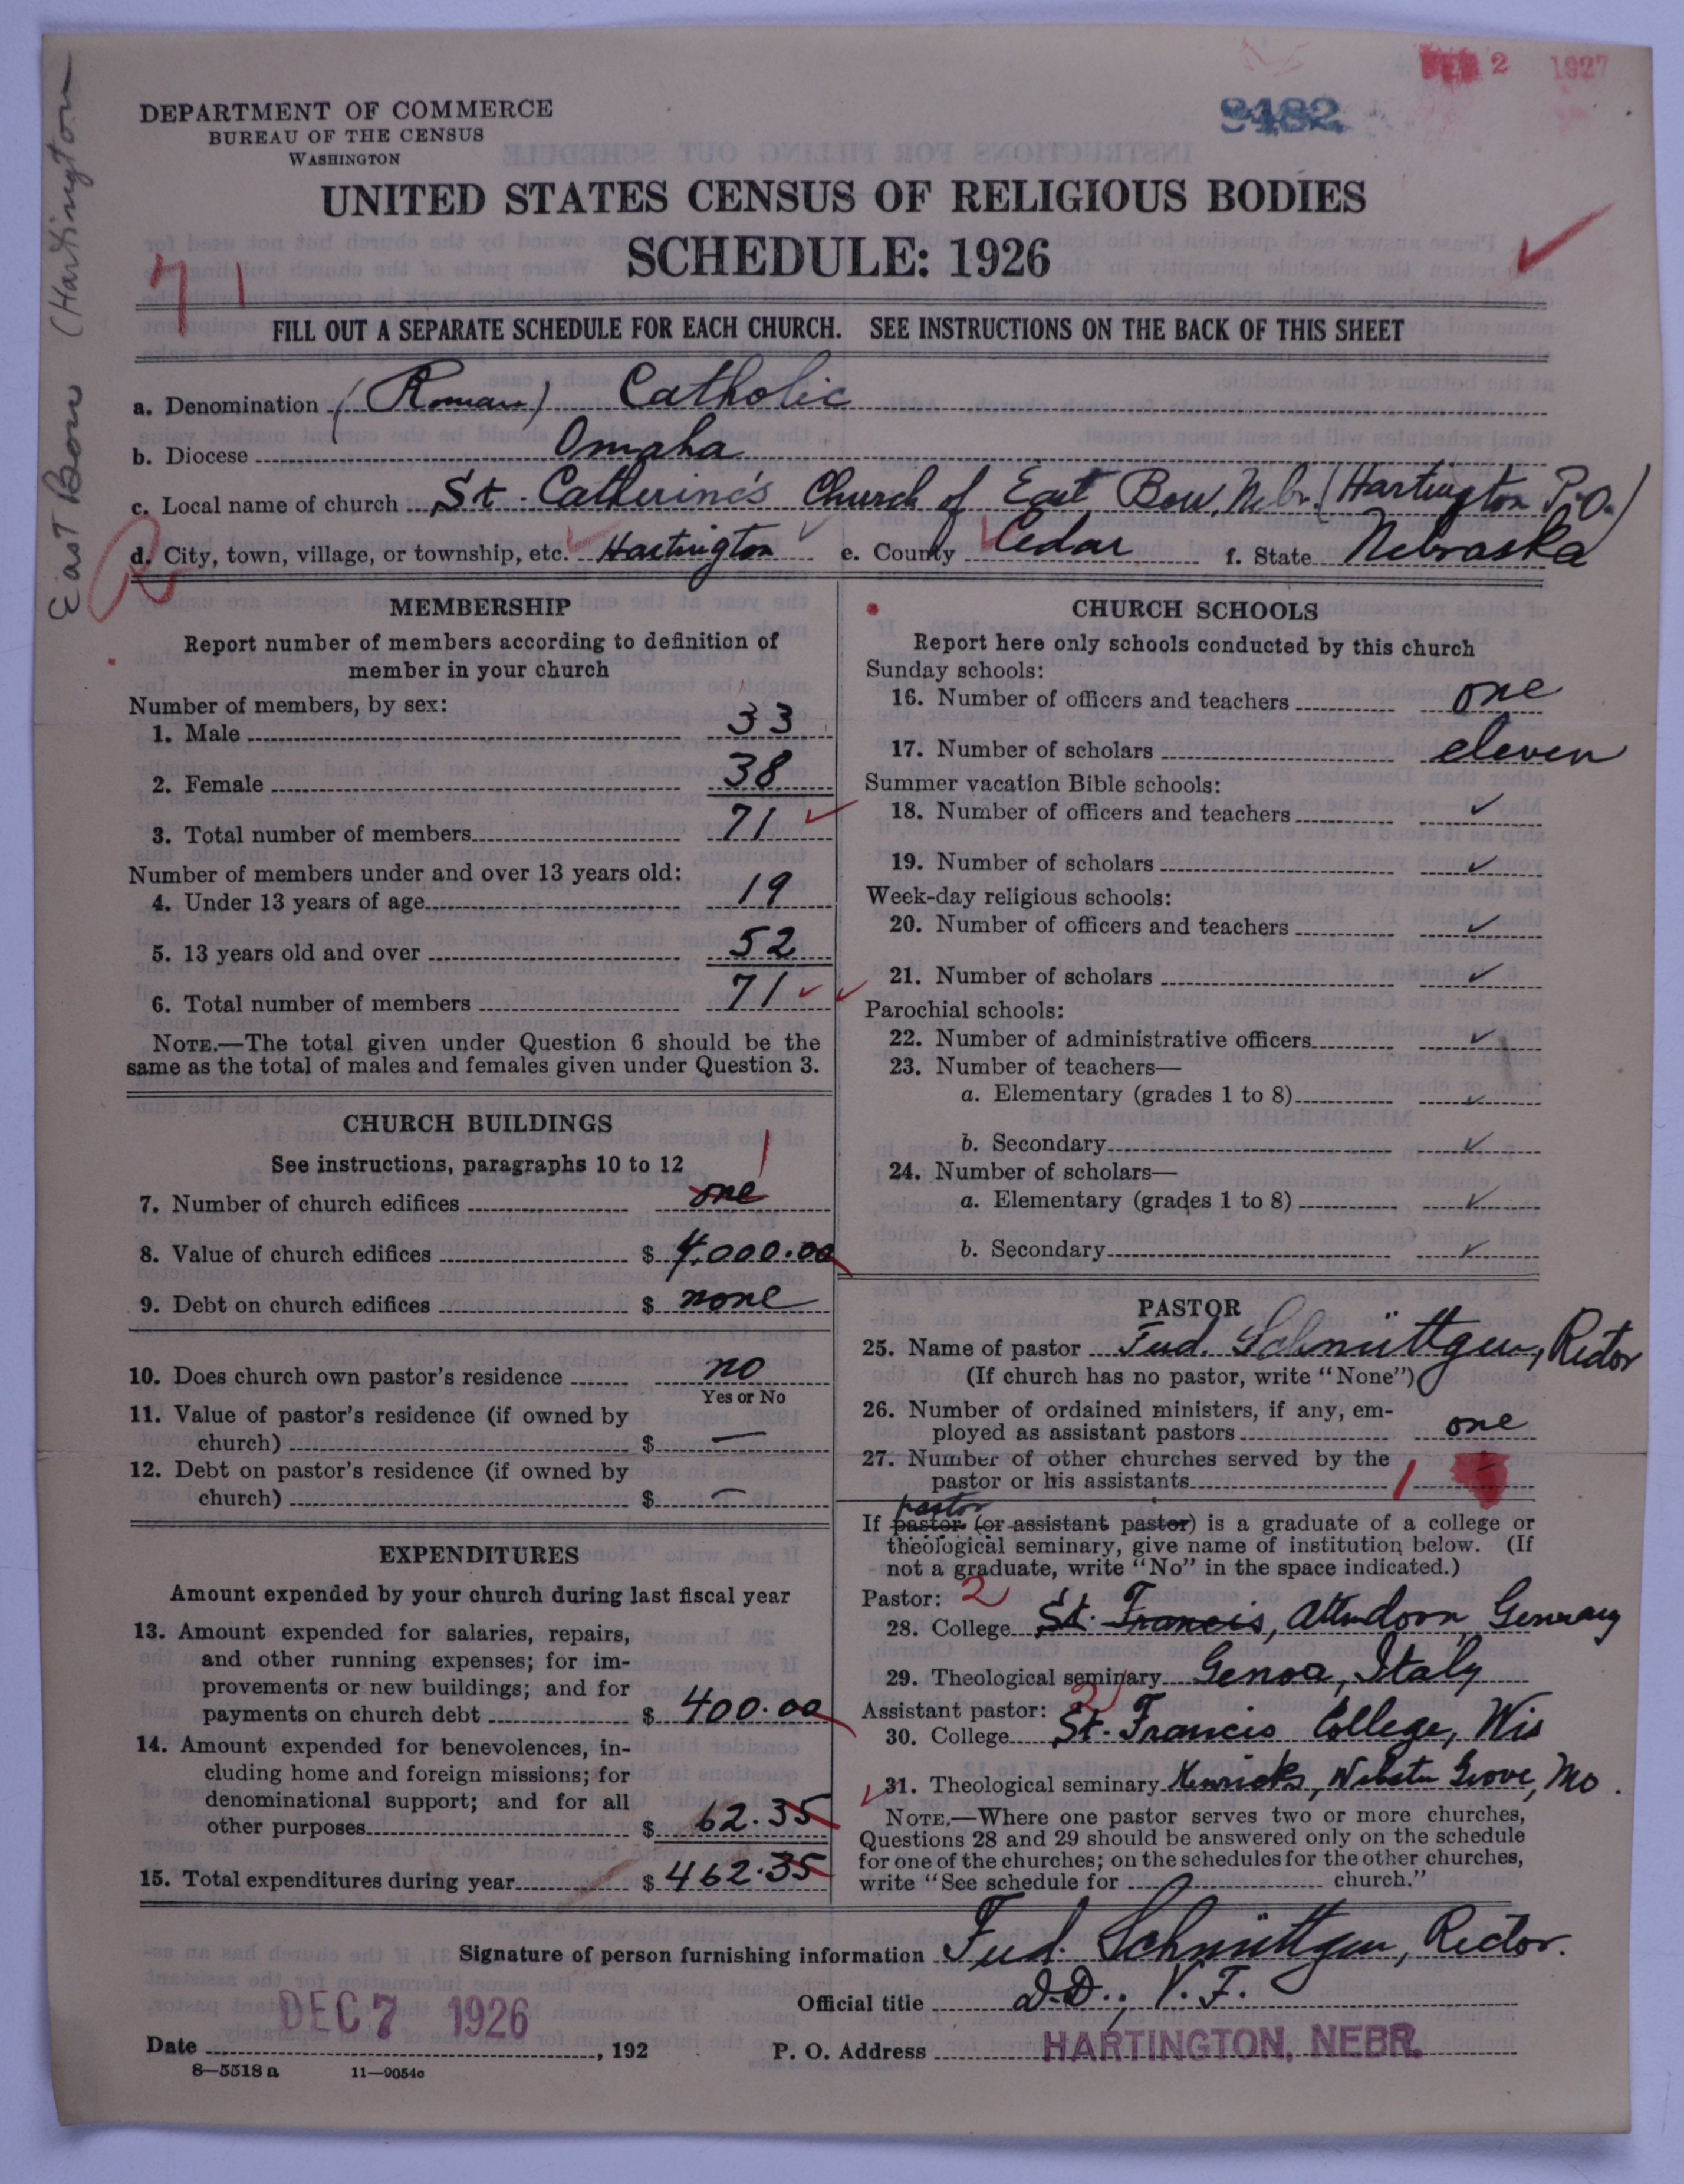 2 1927
9482
DEPARTMENT OF COMMERCE
BUREAU OF THE CENSUS
WASHINGTON
UNITED STATES CENSUS OF RELIGIOUS BODIES
SCHEDULE: 1926
71
East Bow (Hartington
FILL OUT A SEPARATE SCHEDULE FOR EACH CHURCH. SEE INSTRUCTIONS ON THE BACK OF THIS SHEET
a. Denomination (Roman) Catholic
b. Diocese Omaha
c. Local name of church St. Catherine's Church of East Bow, Nebr. (Hartington P.O.)
d. City, town, village, or township, etc. Hartington e. County Cedar f. State Nebraska
MEMBERSHIP
Report number of members according to definition of
member in your church
Number of members, by sex:
1. Male 33
2. Female 38
3. Total number of members 71
Number of members under and over 13 years old:
4. Under 13 years of age 19
5. 13 years old and over 52
6. Total number of members 71
NOTE.—The total given under Question 6 should be the
same as the total of males and females given under Question 3.
CHURCH BUILDINGS
See instructions, paragraphs 10 to 12
1
7. Number of church edifices one
8. Value of church edifices $ 4,000.00
9. Debt on church edifices $ none
10. Does church own pastor's residence no
Yes or No
11. Value of pastor's residence (if owned by
church) $ —
12. Debt on pastor's residence (if owned by
church) $ —
EXPENDITURES
Amount expended by your church during last fiscal year
13. Amount expended for salaries, repairs,
and other running expenses; for im-
provements or new buildings; and for
payments on church debt $ 400.00
14. Amount expended for benevolences, in-
cluding home and foreign missions; for
denominational support; and for all
other purposes $ 62.35
15. Total expenditures during year $ 462.35
CHURCH SCHOOLS
Report here only schools conducted by this church
Sunday schools:
16. Number of officers and teachers one
17. Number of scholars eleven
Summer vacation Bible schools:
18. Number of officers and teachers ✓
19. Number of scholars ✓
Week-day religious schools:
20. Number of officers and teachers ✓
21. Number of scholars ✓
Parochial schools:
22. Number of administrative officers ✓
23. Number of teachers—
a. Elementary (grades 1 to 8) ✓
b. Secondary ✓
24. Number of scholars—
a. Elementary (grades 1 to 8) ✓
b. Secondary ✓
PASTOR
25. Name of pastor Schmüttgen, Rector
(If church has no pastor, write "None")
26. Number of ordained ministers, if any, em-
ployed as assistant pastors one
27. Number of other churches served by the
pastor or his assistants 1
pastor
If pastor (or assistant pastor) is a graduate of a college or
theological seminary, give name of institution below. (If
not a graduate, write "No" in the space indicated.)
Pastor: 2
28. College St. Francis, Attendorn Germany
29. Theological seminary Genoa, Italy
Assistant pastor: 2
30. College St. Francis College, Wis
31. Theological seminary Kenrick, Webster Grove, Mo.
NOTE.—Where one pastor serves two or more churches,
Questions 28 and 29 should be answered only on the schedule
for one of the churches; on the schedules for the other churches,
write "See schedule for church."
Signature of person furnishing information Schmüttgen, Rector.
Official title D.D., V.F.
Date DEC 7 1926, 192
P. O. Address HARTINGTON, NEBR.
8—5518 a 11—9054c